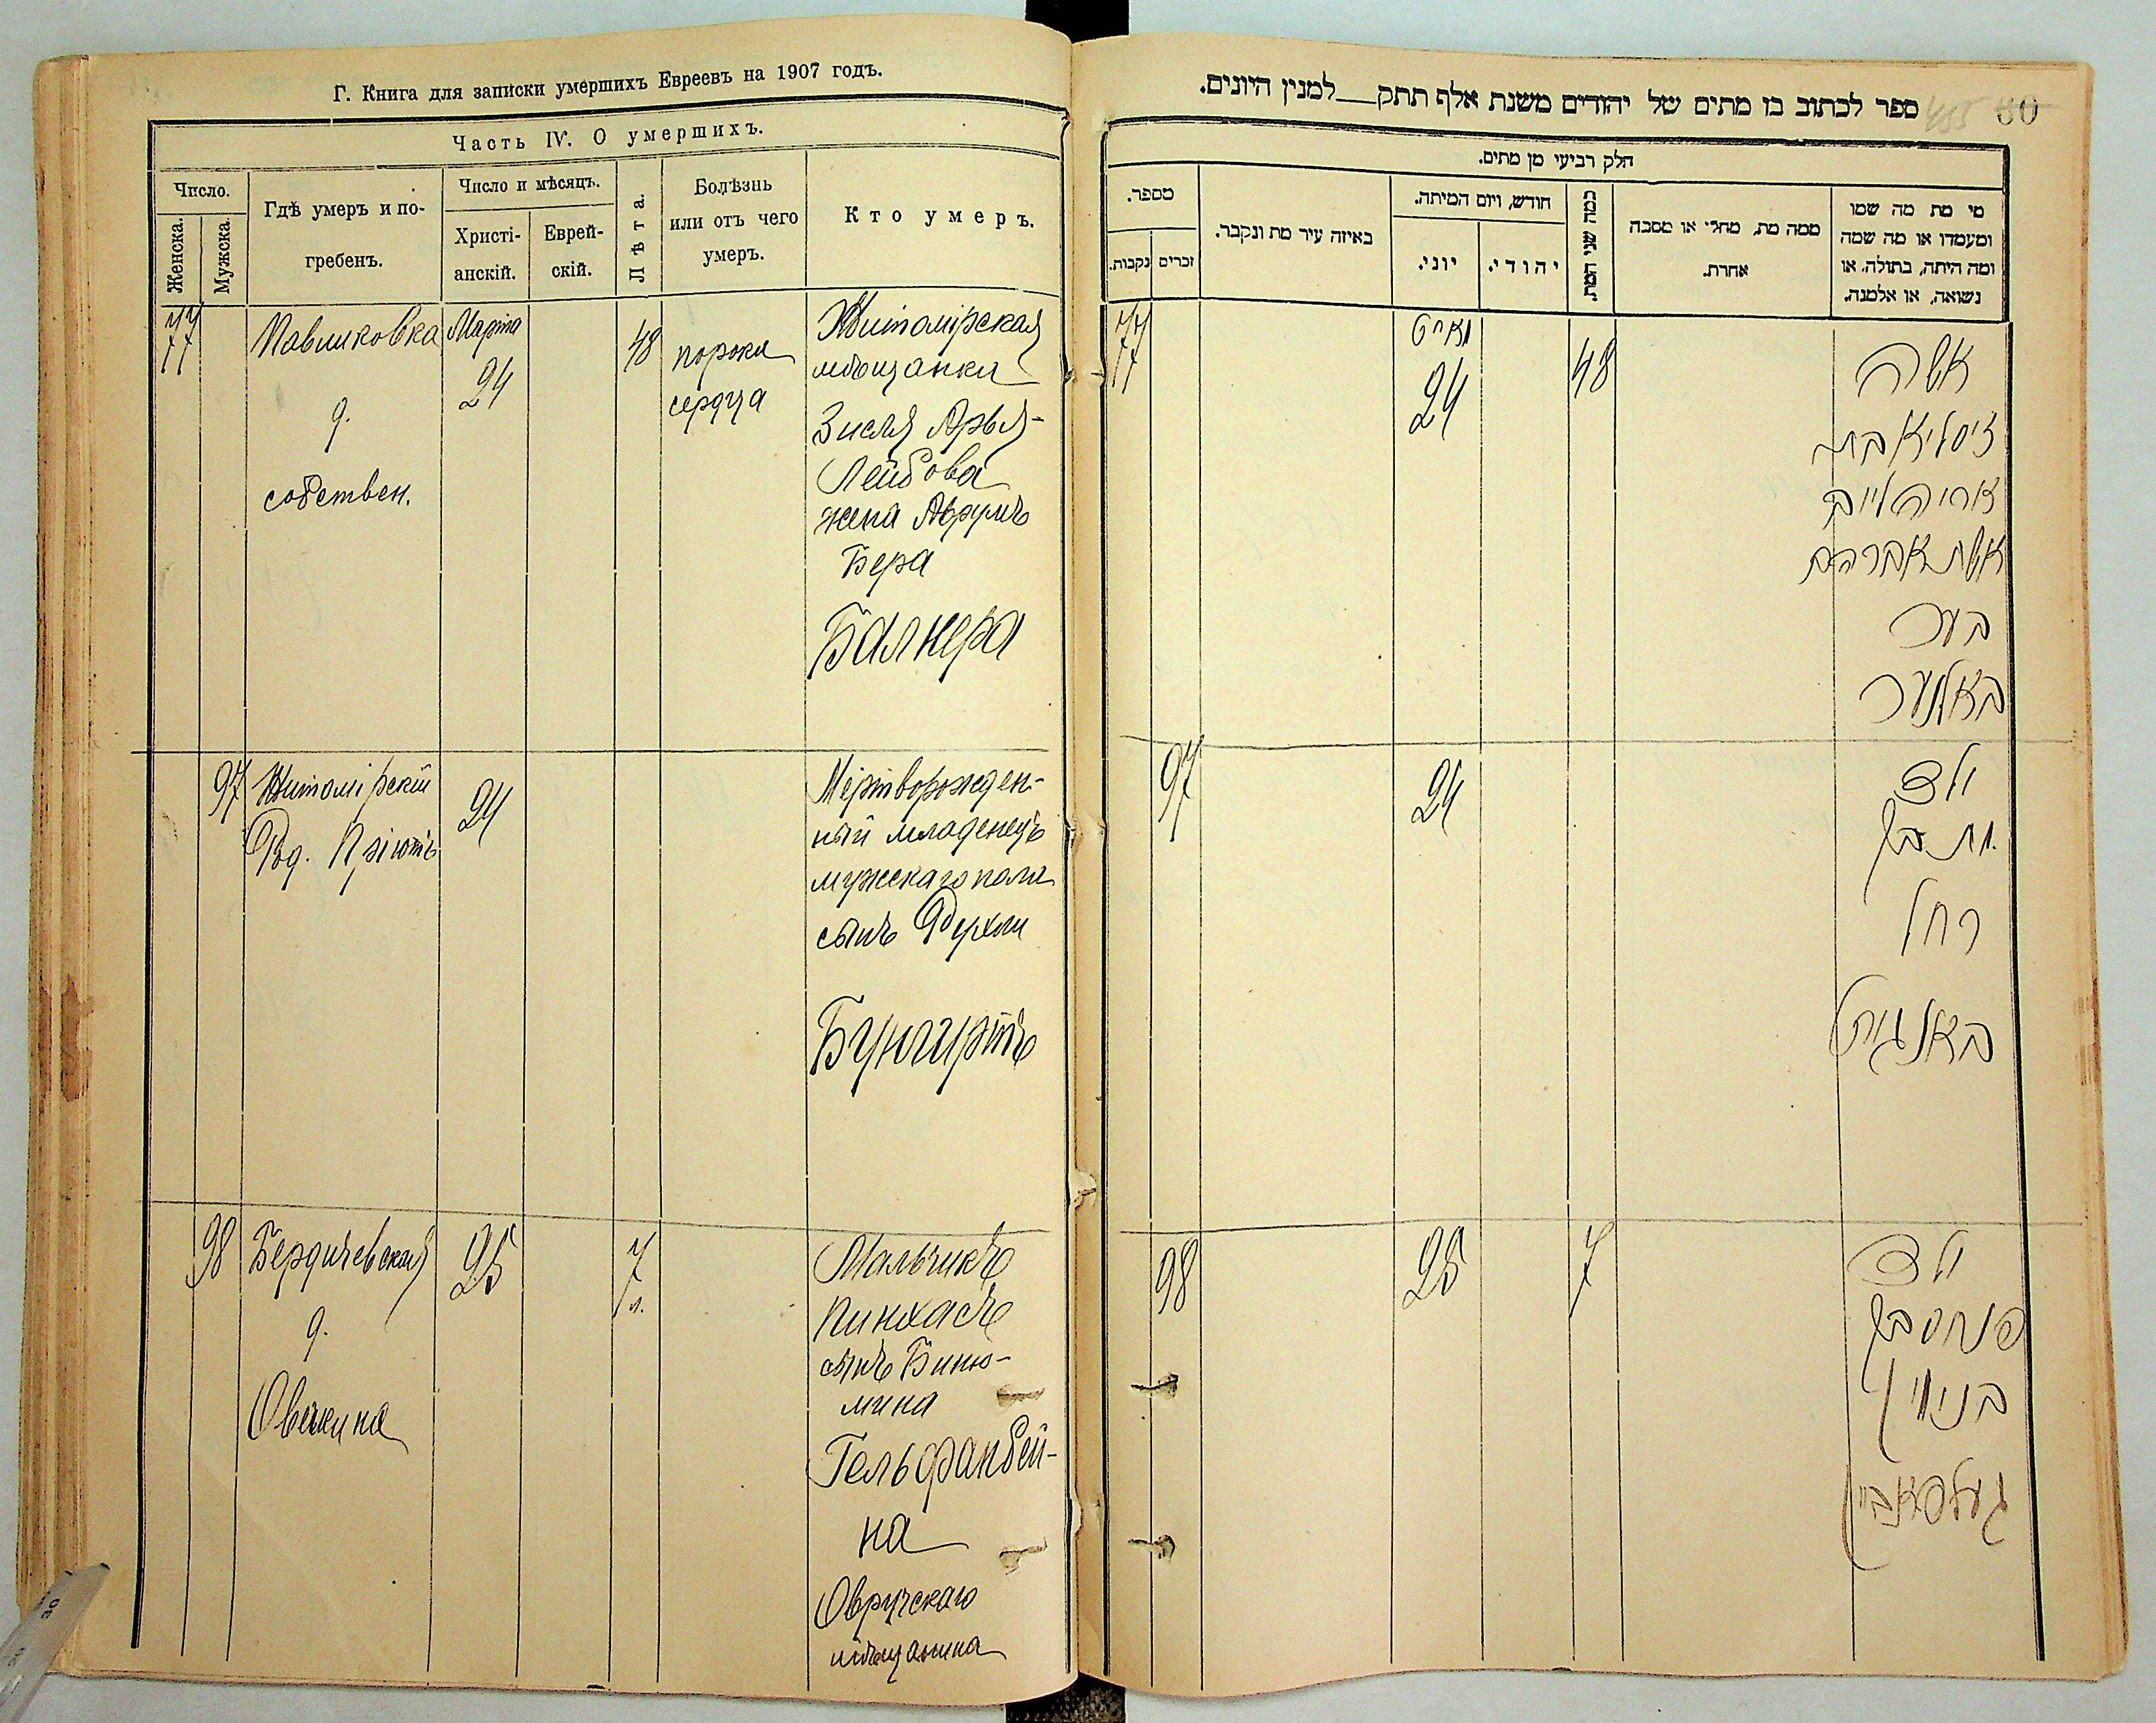 Г. Книга для записки умершихъ Евреевъ на 1907 годъ.
Часть IV. О умершихъ.
Число.
Женска.
Мужска.
Гдѣ умеръ и по-
гребенъ.
Число и мѣсяцъ.
Христі-
анскій.
Еврей-
скій.
Лѣта.
Болѣзнь
или отъ чего
умеръ.
Кто умеръ.
77
Павликовка
д.
собствен.
Марта
24
48
порока
сердца
Житомірская
мѣщанка
Зисля Арья-
Лейбова
жена Аврумъ
Бера
Балнера
97
Житомірскій
Род. Пріютъ
24
Мертворожден-
ный младенецъ
мужскаго пола
сынъ Рухли
Бунгуртъ
98
Бердичевская
д.
Овечкина
25
7
л.
Мальчикъ
Пинхасъ
сынъ Биню-
мина
Гельфанбей-
на
Овручскаго
мѣщанина
ספר לכתוב בו מתים של יהודים משנת אלף תתק למנין היונים.
60
חלק רביעי מן מתים.
מספר.
נקבות.
זכרים
באיזה עיר מת ונקבר.
חודש, ויום המיתה.
יוני.
יהודי.
כמה שני המת.
ממה מת, מחלי או מסבה
אחרת.
מי מת מה שמו
ומעמדו או מה שמה
ומה היתה, בתולה, או
נשואה, או אלמנה.
77
מארט
24
48
אשה
זיסליא בת
אריה ליב
אשת אברהם
בער
באלנער
97
24
ילד
מת בן
רחל
98
25
7
ילד
פנחס בן
בנימין
געלפאנביין